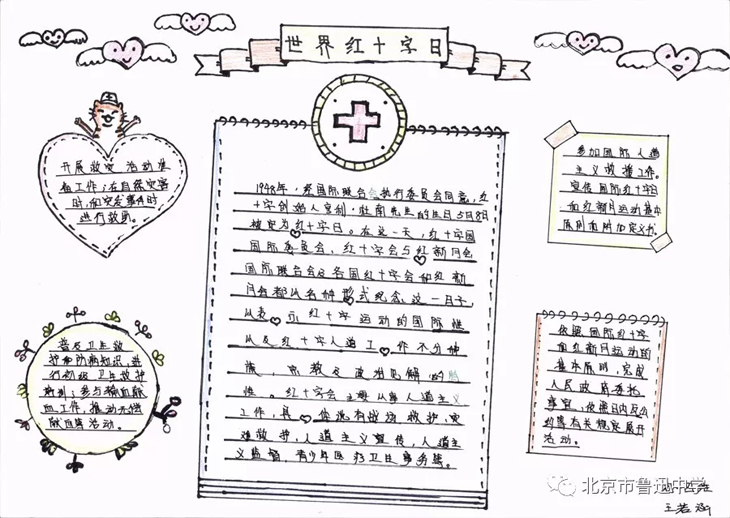 世界红十字日
开展救灾活动准
备工作;在自然灾害
时,和突发事件时
进行救助。
1948年,经国际联合会执行委员会同意,红
十字创始人亨利·杜南先生的生日5月8日
被定为红十字日。在这一天,红十字国
国际委员会、红十字会与红新月会
国际联合会及各国红十字会和红新
月会都以各种形式纪念这一日子,
以表示红十字运动的国际性
以及红十字人道工作不分种
族,宗教及政治见解的
性。红十字会主要从事人道主义
工作,具体说有战场救护,灾
难救护,人道主义宣传,人道主
义监督,青少年医疗卫生事务等。
参加国际人道
主义救援工作。
宣传国际红十字日
和红新月运动基本
原则和附加定义书。
普及卫生救
护和防病知识,进
行初级卫生救护
培训;参与输血献
血工作,推动无偿
献血等活动。
依照国际红十字
和红新月运动的
基本原则,完成
人民政府委托
事宜,依照日内瓦公
约等有关规定展开
活动。
王若涵
北京市鲁迅中学